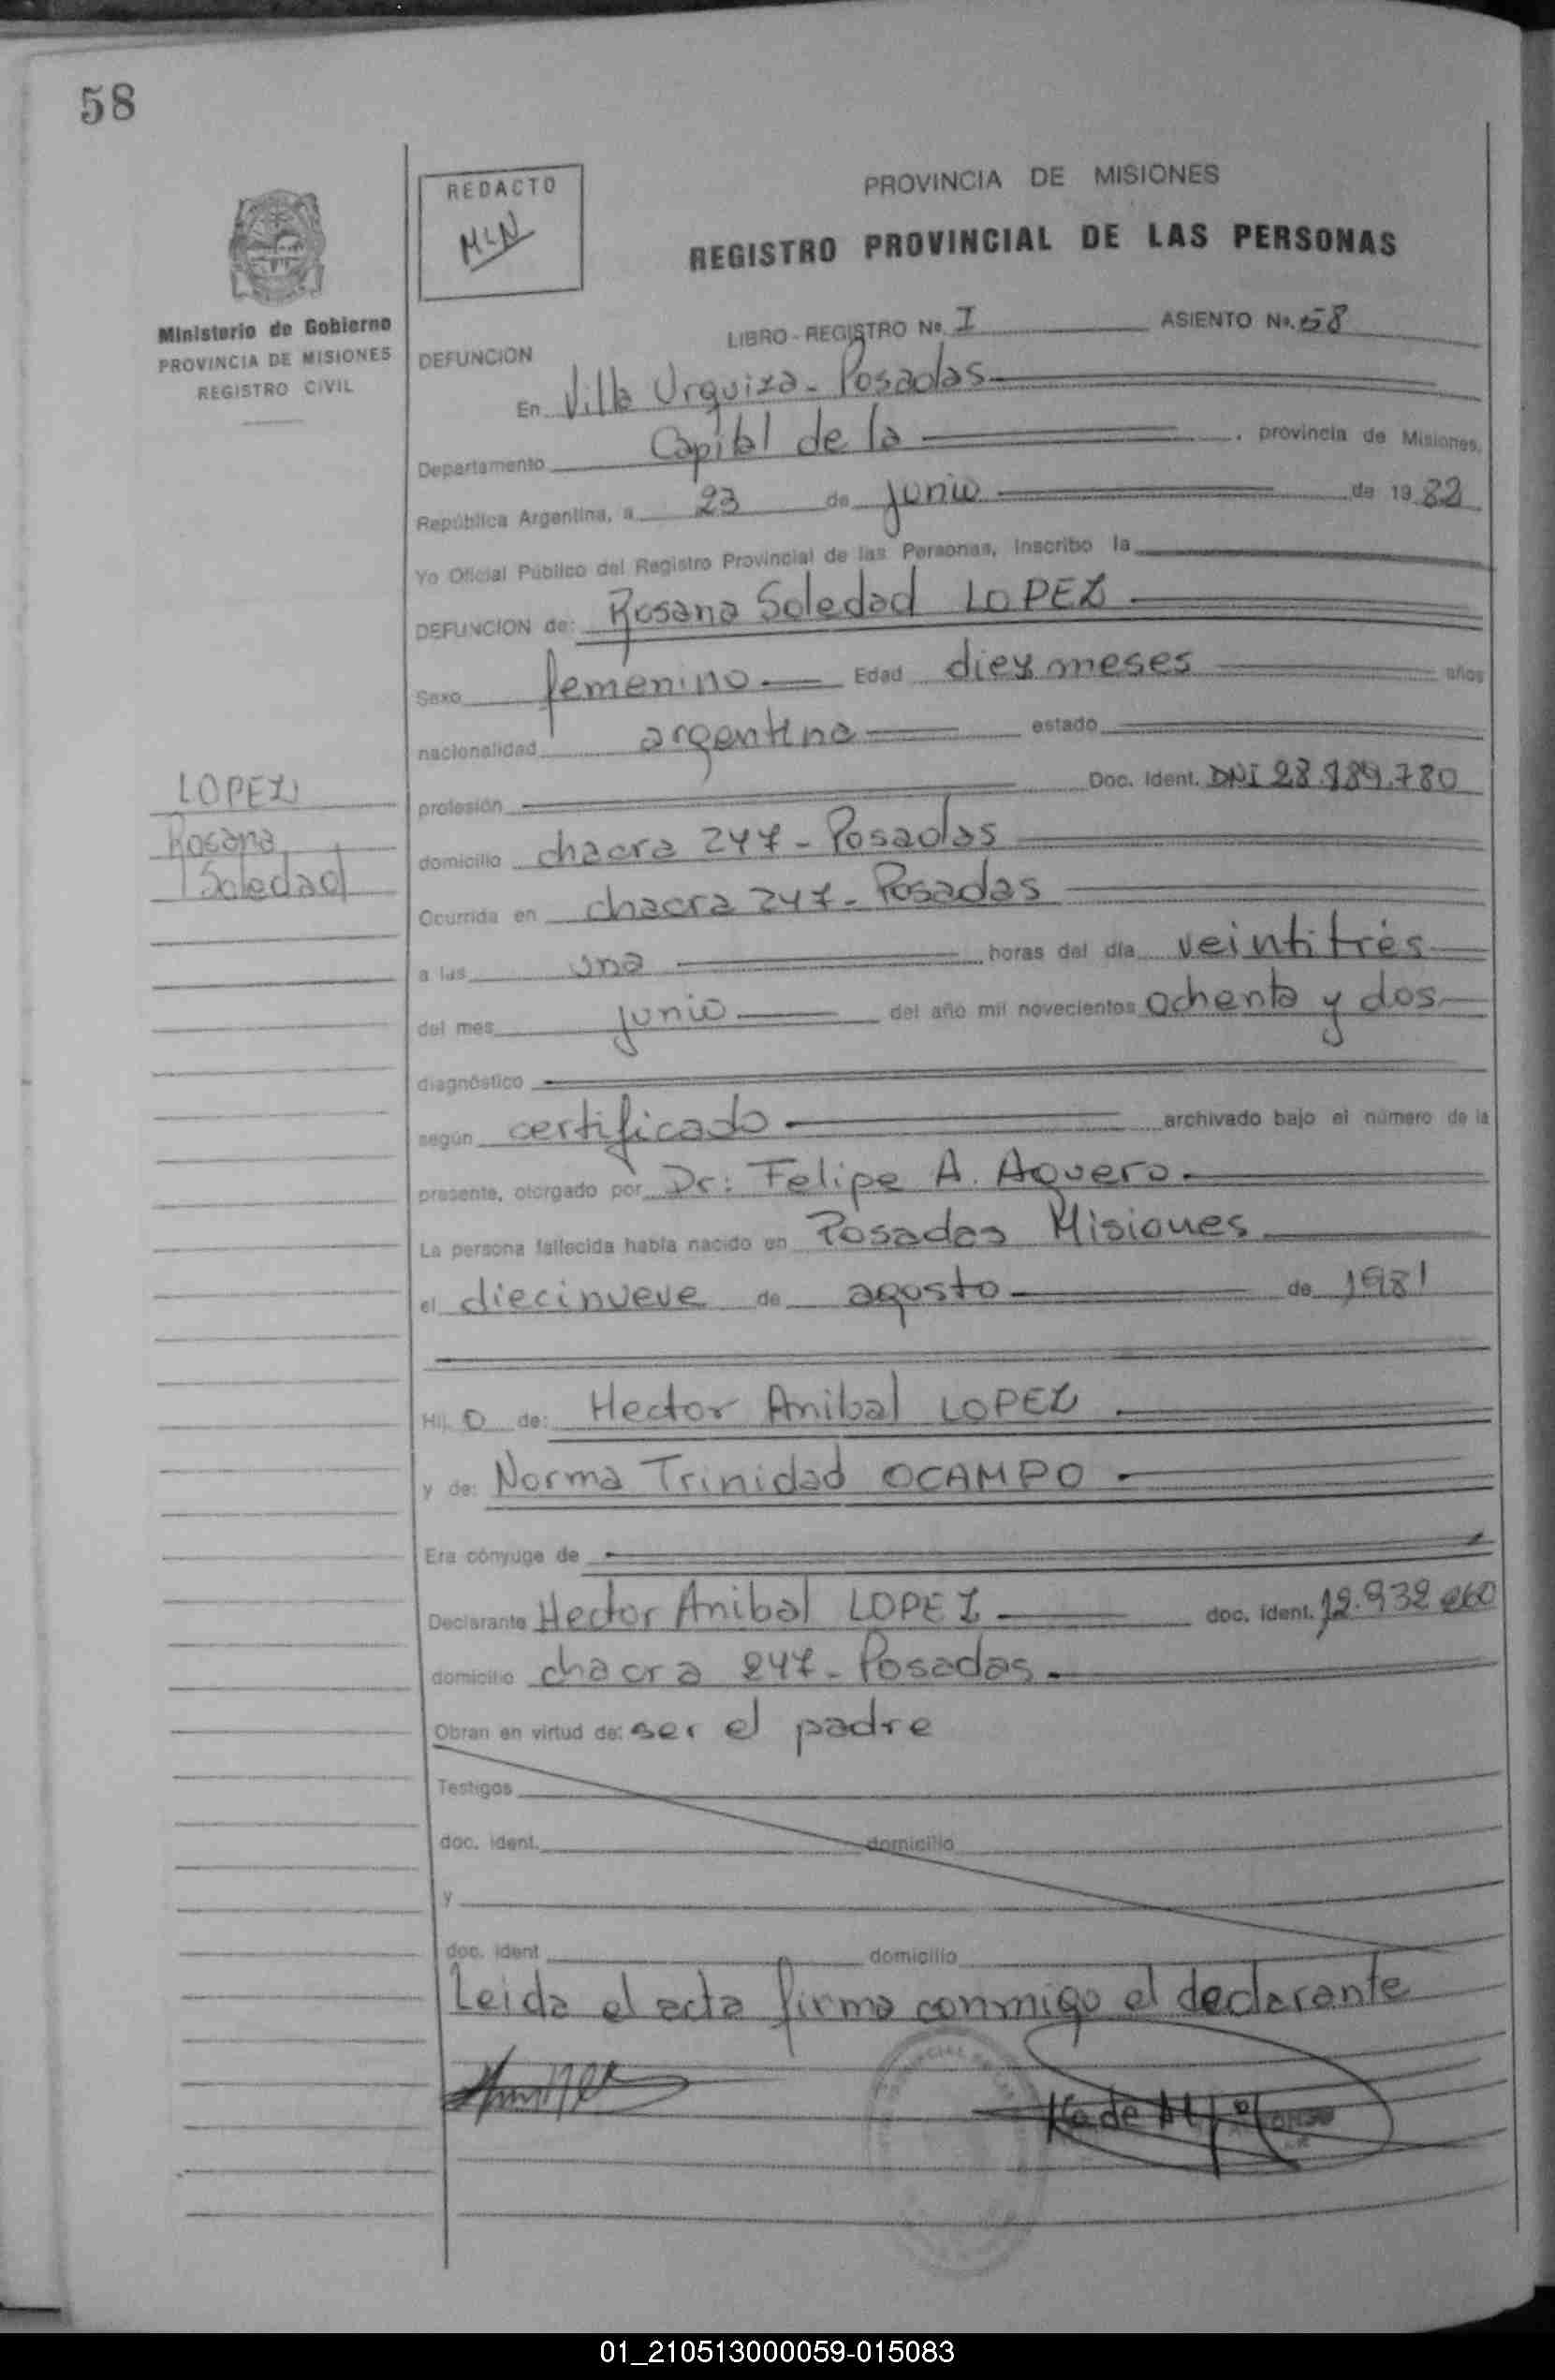 58
REDACTO
MLN
PROVINCIA DE MISIONES
REGISTRO PROVINCIAL DE LAS PERSONAS
Ministerio de Gobierno
PROVINCIA DE MISIONES
REGISTRO CIVIL
LIBRO - REGISTRO No. I ASIENTO No. 58
DEFUNCION
En Villa Urquiza - Posadas
Departamento Capital de la , provincia de Misiones,
República Argentina, a 23 de junio de 1982
Yo Oficial Público del Registro Provincial de las Personas, inscribo la
DEFUNCION de: Rosana Soledad LOPEZ
Sexo femenino Edad diez meses años
nacionalidad argentina estado
LOPEZ
Rosana
Soledad
profesión Doc. Ident. DNI 28.989.780
domicilio chacra 247 - Posadas
Ocurrida en chacra 247 - Posadas
a las una horas del día veintitrés
del mes junio del año mil novecientos ochenta y dos
diagnóstico
según certificado archivado bajo el número de la
presente, otorgado por Dr: Felipe A. Aquero
La persona fallecida había nacido en Posadas Misiones
el diecinueve de agosto de 1981
Hij o de: Hector Anibal LOPEZ
y de: Norma Trinidad OCAMPO
Era cónyuge de
Declarante Hector Anibal LOPEZ doc. ident. 12.932
domicilio chacra 247 - Posadas
Obran en virtud de: ser el padre
Testigos
doc. ident. domicilio
y
doc. ident domicilio
Leida el acta firma conmigo el declarante
01_210513000059-015083